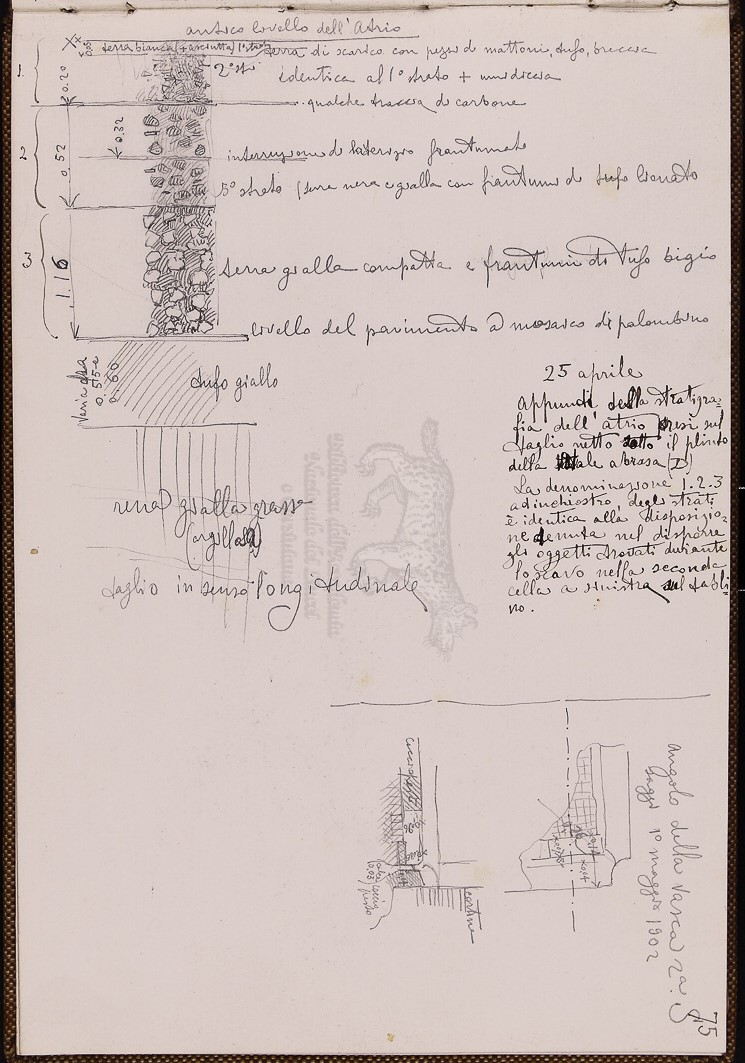 antico livello dell'Atrio
terra bianca (+ asciutta) 1° strato terra di scarico con pezzi di mattoni, tufo, breccia
0.05
1.
0.20
2° str. identica al 1° strato + umidiccia
qualche traccia di carbone
2
0.32
0.52
interruzione di laterizio frantumato
5° strato (terra nera e gialla con frantumi di tufo lionato
3
1.16
terra gialla compatta e frantumi di tufo bigio
livello del pavimento a mosaico di palombino
Varia da
0.55 e
0.60
tufo giallo
rena gialla grassa
(argillosa)
taglio in senso longitudinale
25 aprile
Appunti della stratigra-
fia dell'atrio presi sul
taglio netto sotto il plinto
della abrasa (I)
La denominazione 1.2.3
ad inchiostro, degli strati
è identica alla disposizio-
ne tenuta nel disporre
gli oggetti trovati durante
lo scavo nella seconda
cella a sinistra sul tabli-
no.
Angolo della vasca 2a.
Saggi 1° maggio 1902
cocciopesto
cortina
75